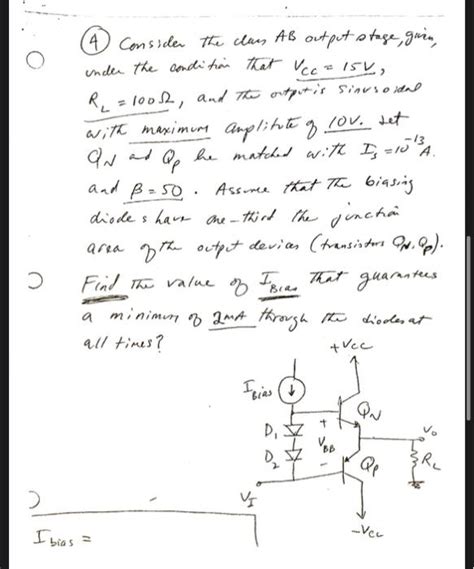 ④ Consider the class AB output stage, given,
under the condition that Vcc = 15V,
RL = 100Ω, and the output is sinusoidal
with maximum amplitute of 10V. Let
QN and Qp be matched with Is = 10⁻¹³ A.
and β = 50. Assume that the biasing
diodes have one-third the junction
area of the output devices (transistors QN, Qp).
Find the value of IBias that guarantees
a minimum of 2mA through the diodes at
all times?
+Vcc
Ibias
QN
D1
+
VBB
Vo
D2
-
Qp
RL
VI
-Vcc
Ibias =